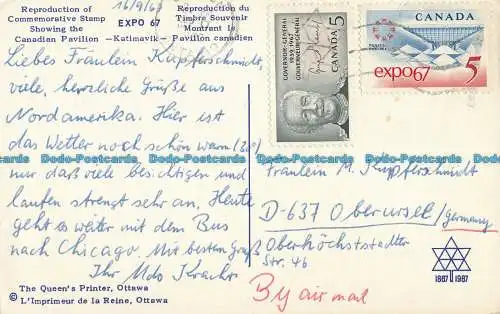 Reproduction of
Commemorative Stamp
Showing the
Canadian Pavilion
16/9/67
EXPO 67
—Katimavik—
Reproduction du
Timbre Souvenir
Montrant le
Pavillon canadien
Liebes Fräulein Kupferschmidt,
viele, herzliche Grüße aus
Nordamerika. Hier ist
das Wetter noch schön warm (20°)
nur daß viele besichtigen und
laufen strengt sehr an. Heute
geht es weiter mit dem Bus
nach Chicago. Mit besten Gruß
Ihr Udo
The Queen's Printer, Ottawa
© L'Imprimeur de la Reine, Ottawa
GOVERNOR-GENERAL
1959-1967
GOUVERNEUR-GÉNÉRAL
CANADA 5
CANADA
expo67 5
Fräulein M. Kupferschmidt
D-637 Oberursel / Germany
Oberhöchststadter
Str. 46
By air mail
1867 1967
Dodo-Postcards Dodo-Postcards Dodo-Postcards Dodo-Postcards